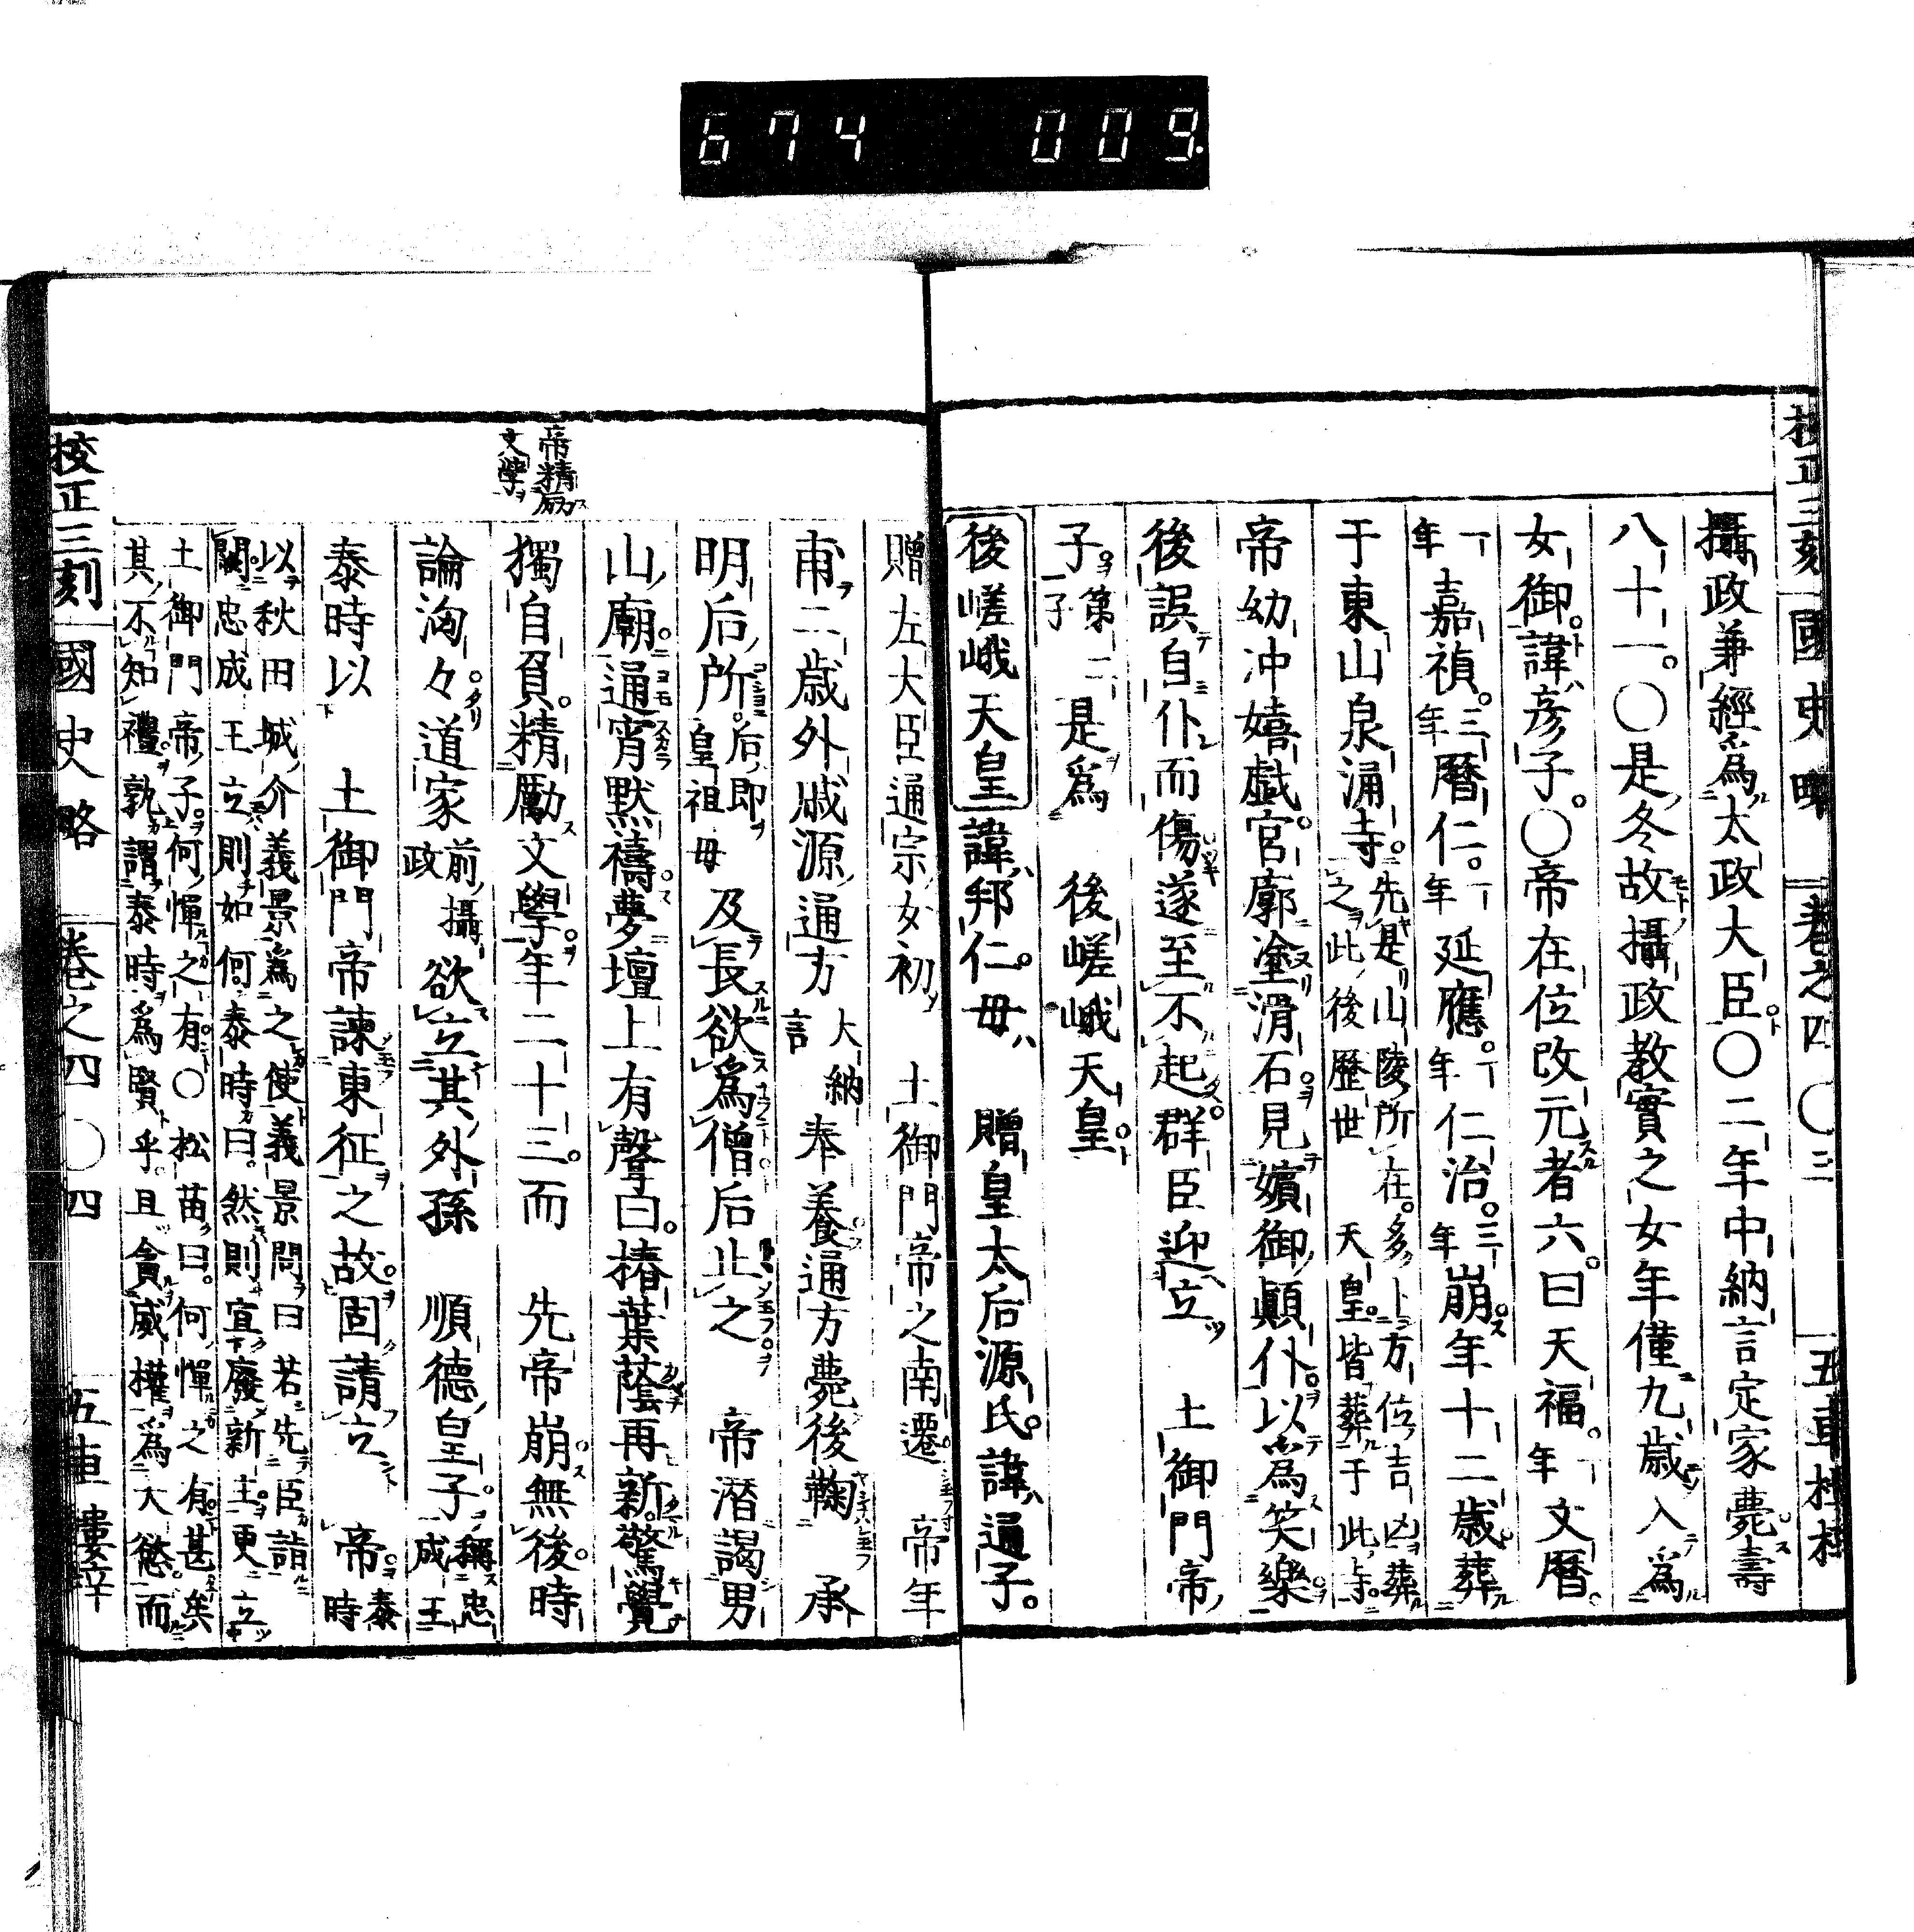 674 009
校正三刻 國史略 卷之四 〇三 五車樓梓
攝政兼經為太政大臣〇二年中納言定家薨壽
八十一〇是冬故攝政教實之女年僅九歳入爲
女御諱彦子〇帝在位改元者六曰天福一年文曆
一年嘉禎三年曆仁一年延應一年仁治三年崩年十二歳葬
于東山泉涌寺先是山陵所在多卜方位吉凶葬之此後歷世天皇皆葬于此寺
帝幼冲嬉戯宮廓塗滑石見嬪御顚仆以爲笑樂
後誤自仆而傷遂至不起群臣迎立 土御門帝
子第二子是爲 後嵯峨天皇
後嵯峨天皇諱邦仁母 贈皇太后源氏諱通子
贈左大臣通宗女初 土御門帝之南遷 帝年
甫二歳外戚源通方大納言奉養通方薨後鞠 承
明后所后即皇祖母及長欲爲僧后止之 帝潛謁男
山廟通宵默禱夢壇上有聲曰椿葉蔭再新驚覺
獨自負精勵文學年二十三而 先帝崩無後時
帝精勵文學
論洶々道家前攝政欲立其外孫 順德皇子稱忠成王
泰時以 土御門帝諫東征之故固請立 帝泰時
以秋田城介義景爲之使義景問曰若先臣詣
闕忠成王立則如何泰時曰然則宜廢新主更立
土御門帝子何憚之有〇松苗曰何憚之有甚矣
其不知禮孰謂泰時爲賢乎且貪威權爲大慾而
校正三刻 國史略 卷之四 〇四 五車樓梓